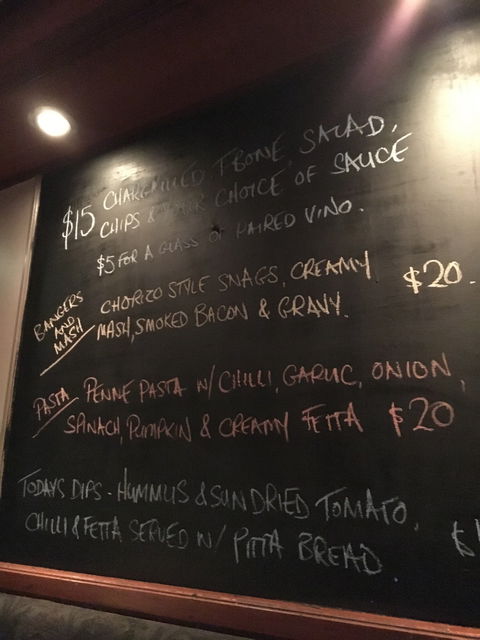 $15 CHARGRILLED T-BONE, SALAD,
CHIPS & YOUR CHOICE OF SAUCE
$5 FOR A GLASS OF PAIRED VINO.
BANGERS AND MASH
CHORIZO STYLE SNAGS, CREAMY $20.
MASH, SMOKED BACON & GRAVY.
PASTA PENNE PASTA W/ CHILLI, GARLIC, ONION,
SPINACH, PUMPKIN & CREAMY FETTA $20
TODAYS DIPS - HUMMUS & SUNDRIED TOMATO,
CHILLI & FETTA SERVED W/ PITTA BREAD.